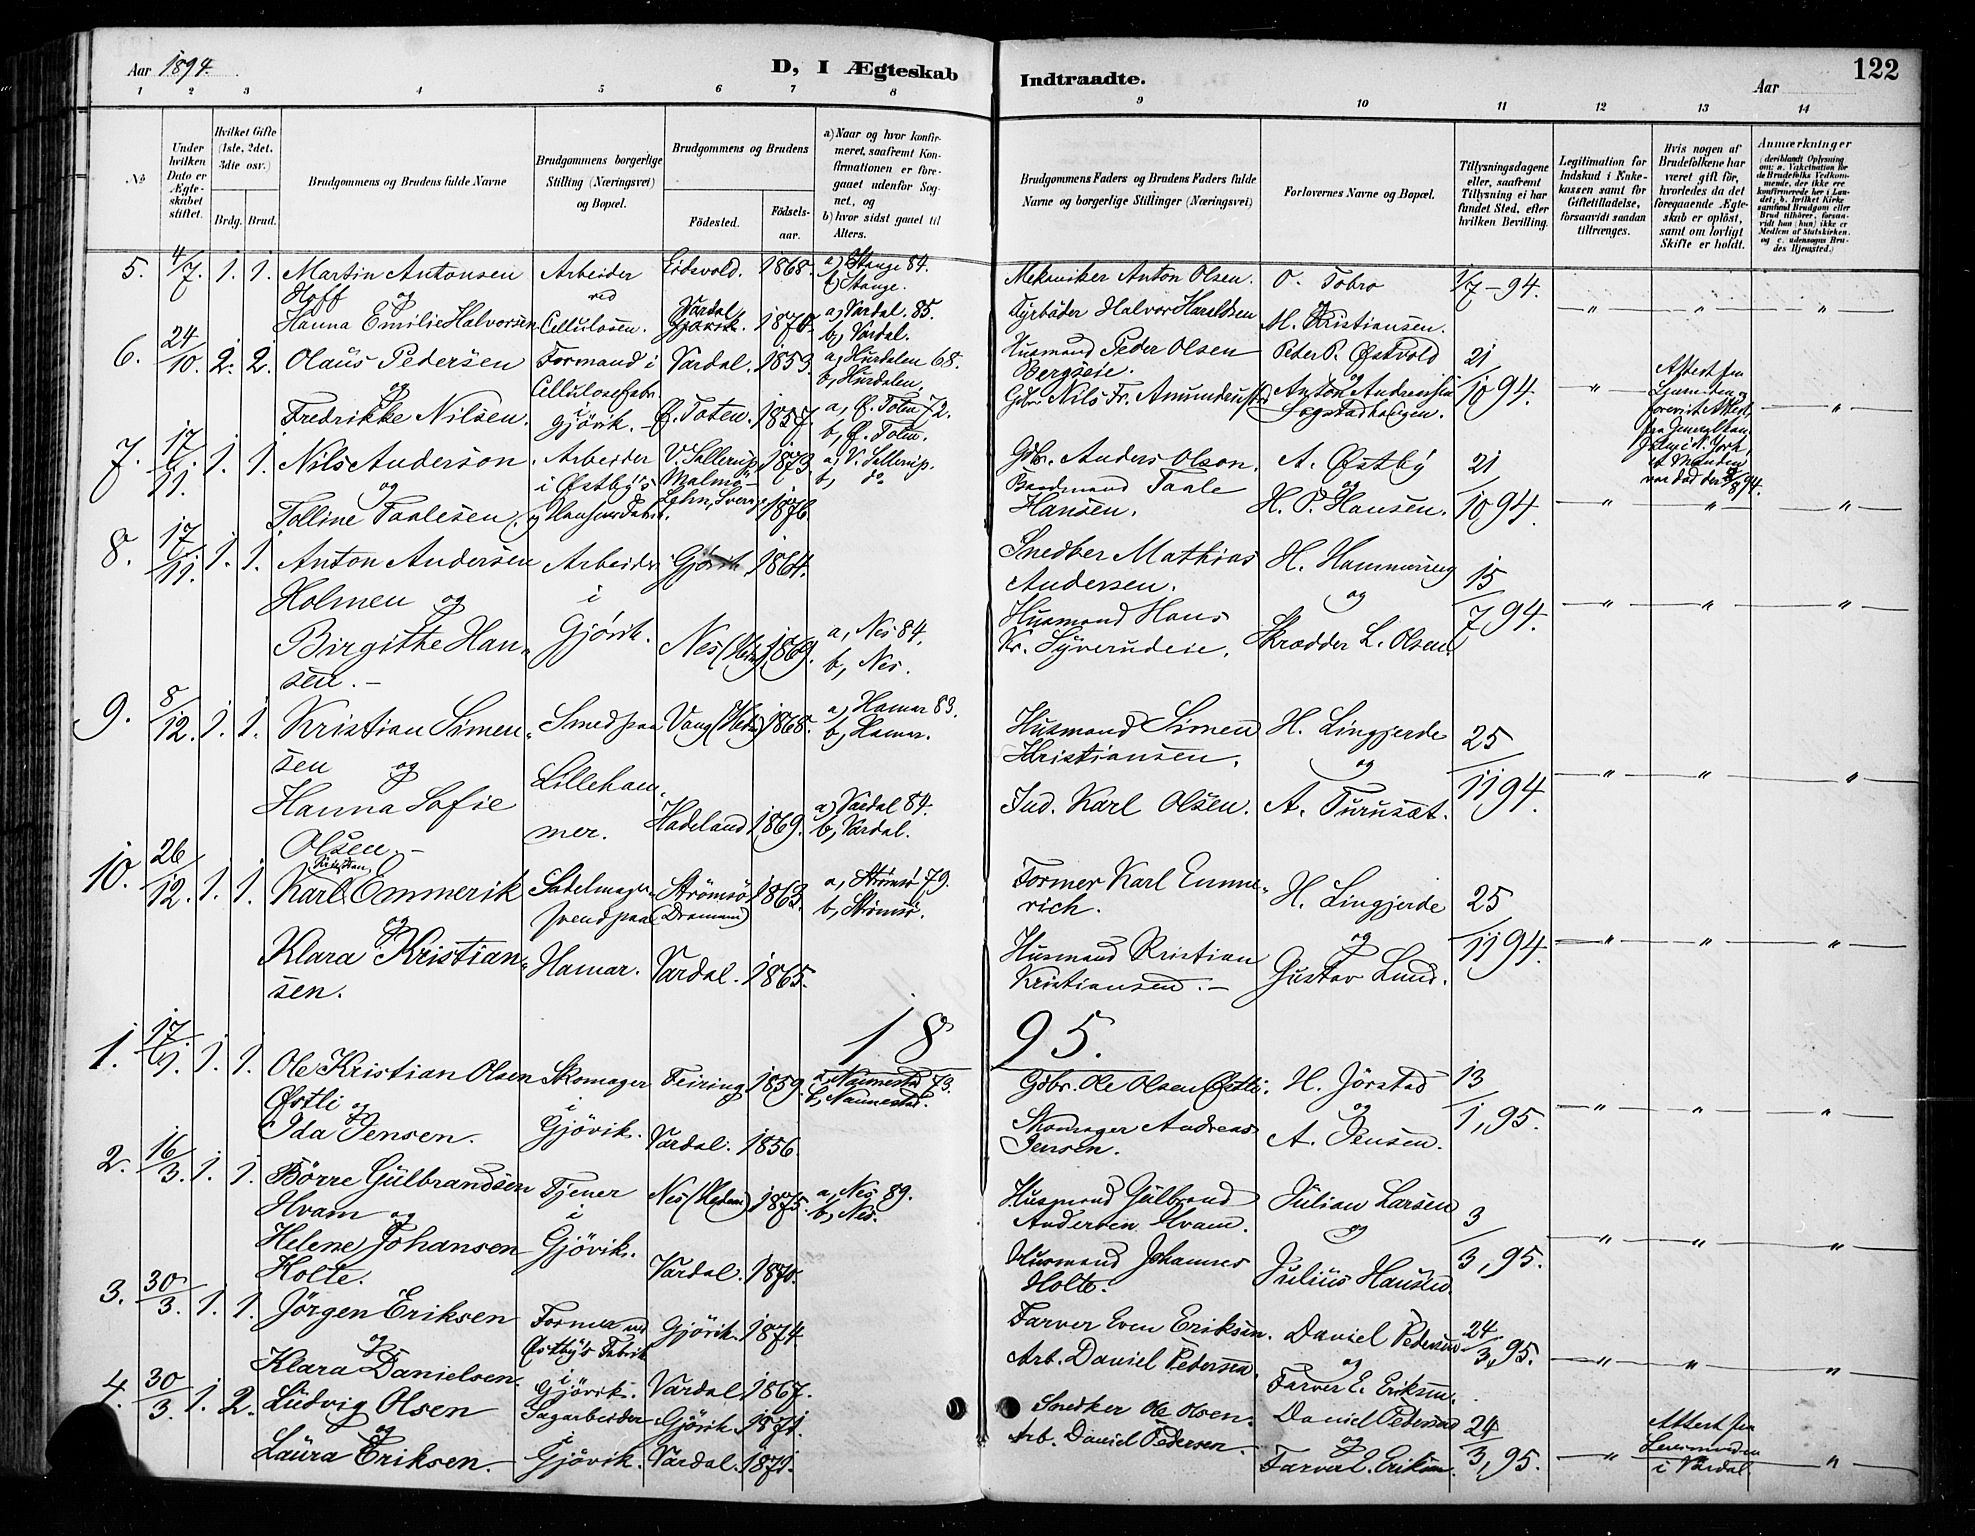 Aar 1894.
D, I Ægteskab Indtraadte.
Aar
122
1 2 3 4 5 6 7 8 9 10 11 12 13 14
No
Under hvilken Dato er Ægteskabet stiftet.
Hvilket Gifte (1ste, 2det, 3die osv.)
Brdg. Brud.
Brudgommens og Brudens fulde Navne
Brudgommens borgerlige Stilling (Næringsvei) og Bopæl.
Brudgommens og Brudens
Fødested.
Fødselsaar.
a) Naar og hvor konfirmeret, saafremt Konfirmationen er foregaaet udenfor Sognet, og b) hvor sidst gaaet til Alters.
Brudgommens Faders og Brudens Faders fulde Navne og borgerlige Stillinger (Næringsvei)
Forlovernes Navne og Bopæl.
Tillysningsdagene eller, saafremt Tillysning ei har fundet Sted, efter hvilken Bevilling.
Legitimation for Indskud i Enkekassen samt for Giftetilladelse, forsaavidt saadan tiltrænges.
Hvis nogen af Brudefolkene har været gift før, hvorledes da det foregaaende Ægteskab er opløst, samt om lovligt Skifte er holdt.
Anmærkninger
5. 4/7. 1. 1. Martin Antonsen Hoff og Arbeider ved Cellulosen. Eidsvold. 1868. a) Stange 84. b) Stange. Mekaniker Anton Olsen. O. Tobro 1/7-94.
Hanna Emilie Halvorsen Vardal 1870. a, Vardal. 85. b, Vardal. Fyrbøder Halvor Haraldsen M. Kristiansen.
6. 24/10. 2. 2. Olaus Pedersen og Formand i Cellulosefabr. i Gjövik. Vardal. 1853. a, Hurdalen 68. b, Hurdalen. Husmand Peder Olsen Bergseie. Peder P. Østvold og 21/10 94.
Fredrikke Nilsen. Ø. Toten. 1857. a, Ø. Toten 72. b, Ø. Toten. Gdbr. Nils Fr. Amundrustad Anton Andreassen
7. 17/11. 1. 1. Nils Anderson og Arbeider i Østby's V. Sallerup, Malmø Lehn, Sverig 1873. a, V. Sallerup. b, do Gdbr. Anders Olson. A. Østby og 21/10 94.
Tolline Paalesen 1876. Baadmand Paale Hansen. H. P. Hansen.
8. 17/11. 1. 1. Anton Andersen Holmen og Arbeider i Gjövik. Gjövik 1864. Snedker Mathias Andersen. H. Hammering og 15/7 94.
Birgitte Hansen. Nes (Hedm) 1869. a, Nes 84. b, Nes. Husmand Hans Kr. Syverudeie. Skrædder L. Olsen.
9. 8/12. 1. 1. Kristian Simensen og Smed paa Lillehammer. Vang (Hedm) 1868. a, Hamar 83. b, Hamar. Husmand Simen Kristiansen. H. Lingjerde og 25/11 94.
Hanna Sofie Olsen. Hadeland 1869. a) Vardal 84. b, Vardal. Ind. Karl Olsen. A. Turusæt.
10. 26/12. 1. 1. Karl Kristian Emmerik og Sadelmagersvend paa Hamar. Strömsö (Drammen) 1863. a, Strömsö 79. b, Strömsö. Former Karl Emmerich. H. Lingjerde og 25/11 94.
Klara Kristiansen. Vardal. 1865. Husmand Kristian Kristiansen. Gustav Lund.
1895.
1. 17/1. 1. 1. Ole Kristian Olsen Østli og Skomager i Gjövik. Feiring 1859. a, Nannestad 73. b, Nannestad. Gdbr. Ole Olsen Østli. H. Jörstad og 13/1, 95.
Ida Jensen. Vardal. 1856. Skomager Andreas Jensen. A. Jensen.
2. 16/3. 1. 1. Börre Gulbrandsen Hvam og Tjener i Gjövik. Nes (Hedm) 1875. a, Nes 89. b, Nes. Husmand Gulbrand Andersen Hvam. Julian Larsen og 3/3, 95.
Helene Johansen Holte. Vardal. 1870. Husmand Johannes Holte. Julius Hansen.
3. 30/3. 1. 1. Jörgen Eriksen og Former ved Østby's Fabrik i Gjövik. Gjövik. 1874. Farver Even Eriksen. Daniel Pedersen og 24/3, 95.
Klara Danielsen. Vardal 1867. Arb. Daniel Pedersen. Farver E. Eriksen.
4. 30/3. 1. 2. Ludvig Olsen og Sagarbeider i Gjövik. Gjövik 1871. Snedker Ole Olsen. Daniel Pedersen og 24/3, 95. Attest fra Lensmanden i Vardal.
Laura Eriksen. Vardal. 1871. Arb. Daniel Pedersen. Farver E. Eriksen.